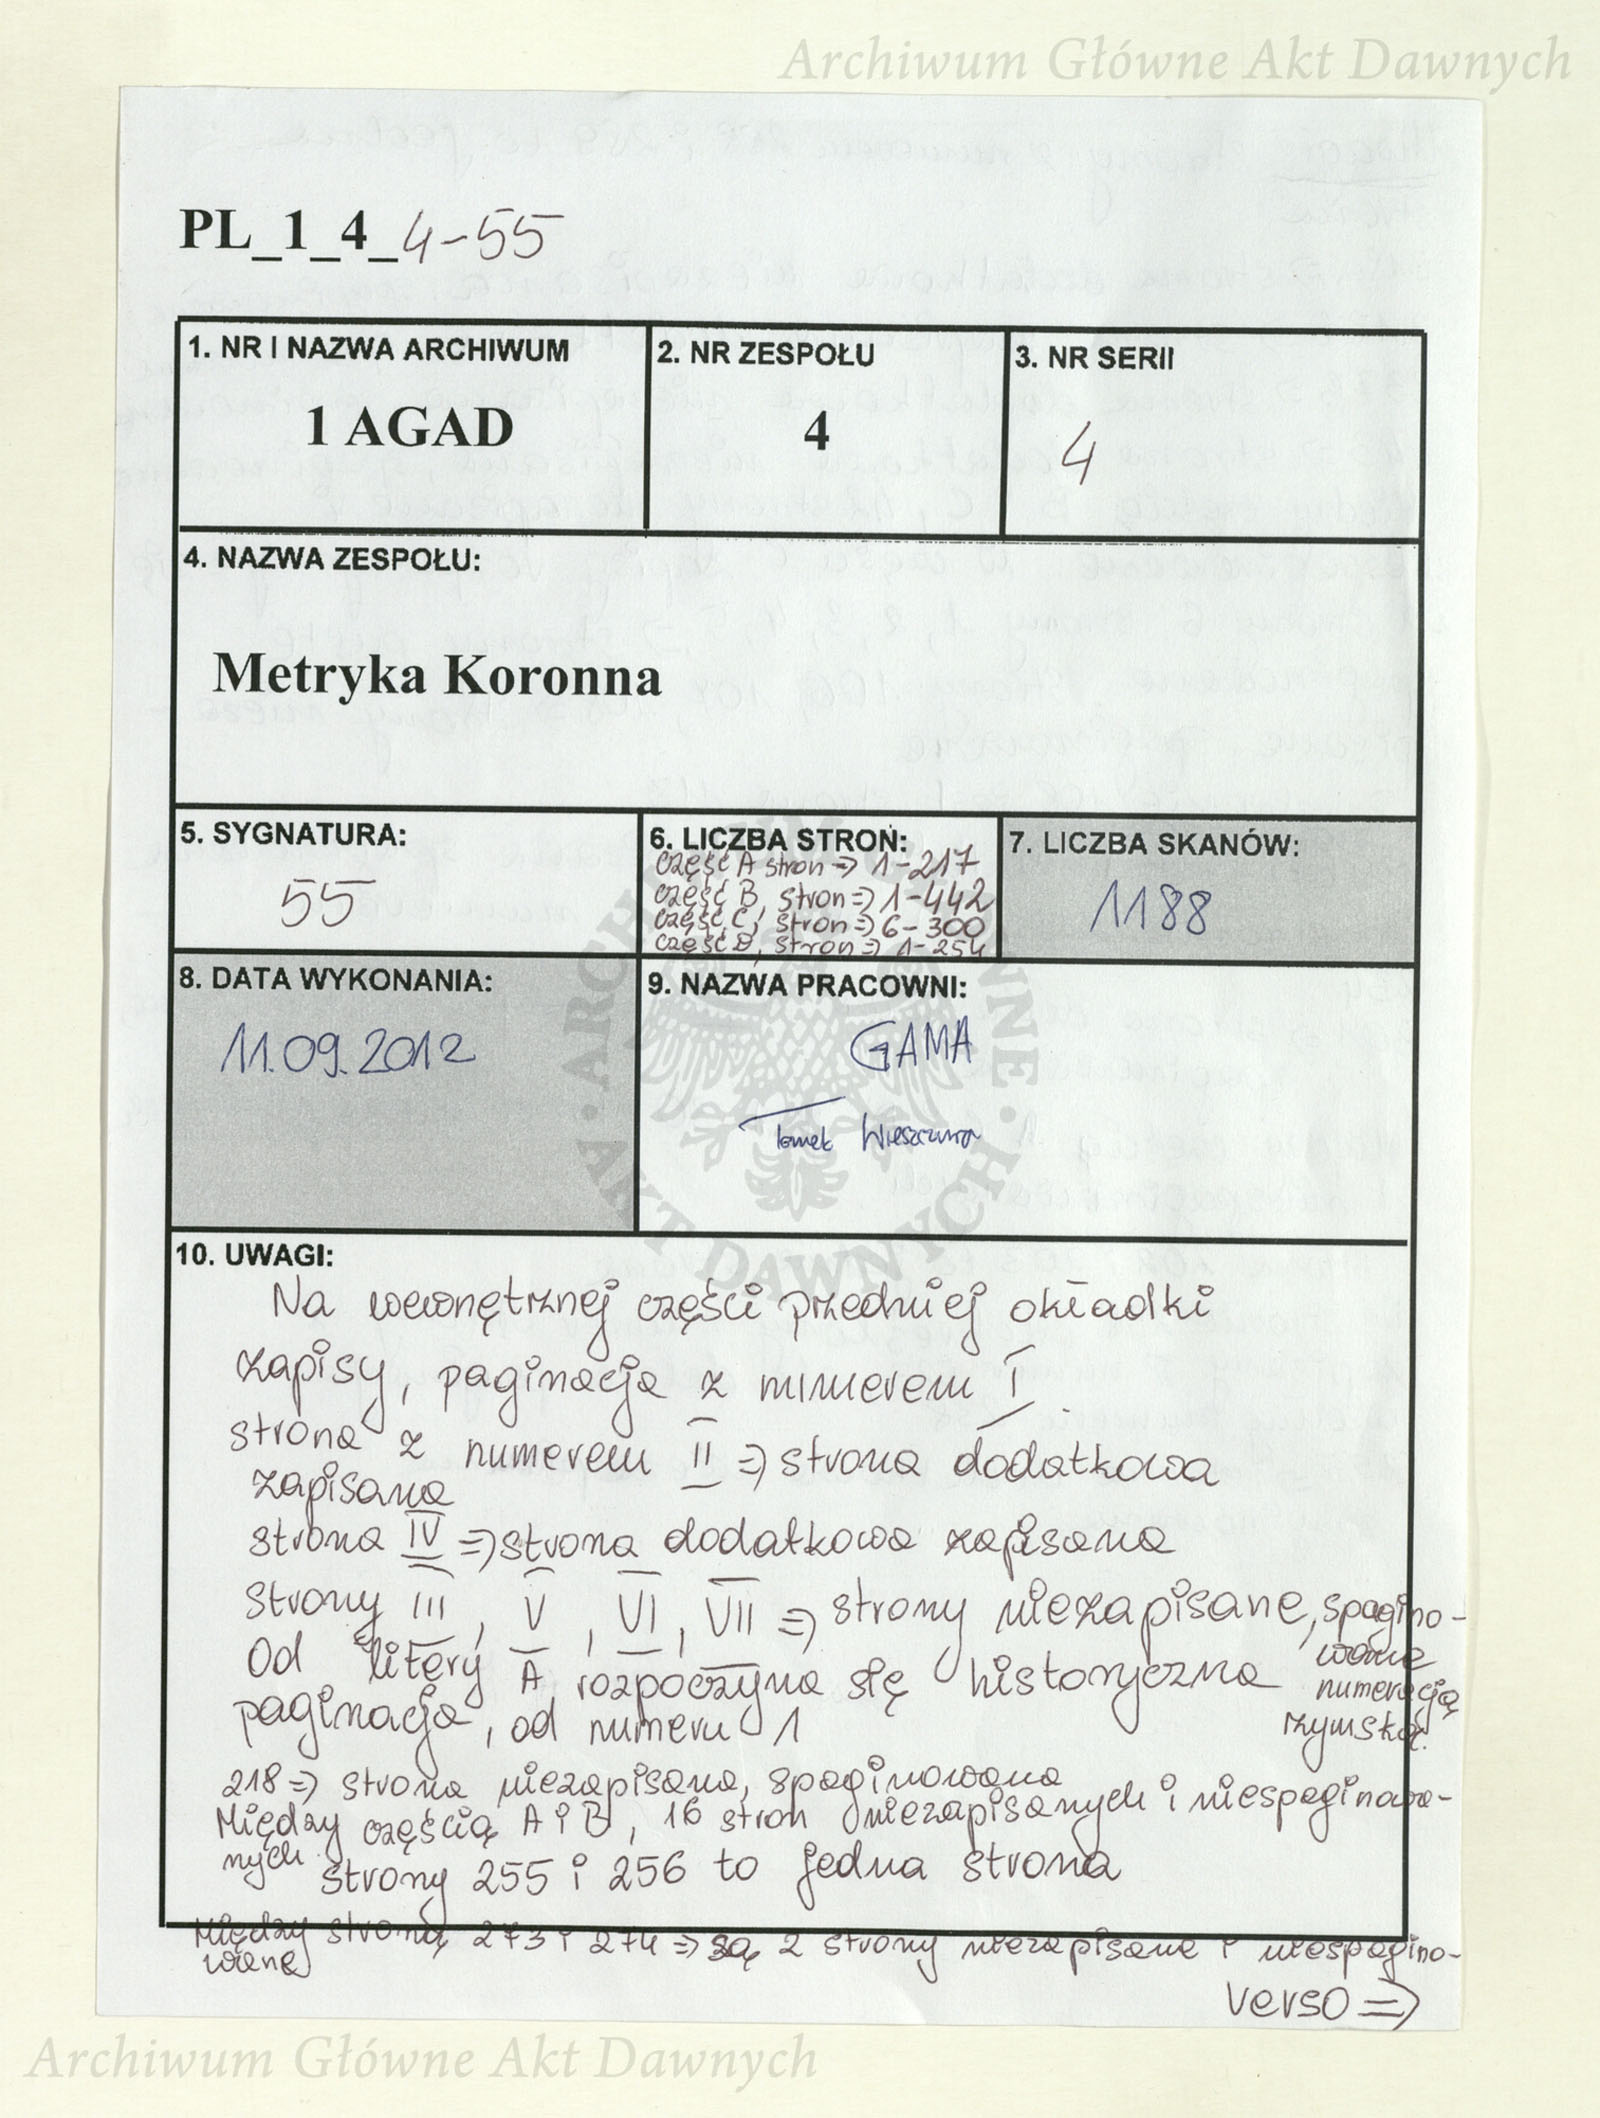 Archiwum Główne Akt Dawnych
PL_1_4_4-55
1. NR I NAZWA ARCHIWUM
1 AGAD
2. NR ZESPOŁU
4
3. NR SERII
4
4. NAZWA ZESPOŁU:
Metryka Koronna
5. SYGNATURA:
55
6. LICZBA STRON:
część A stron => 1-217
część B, stron => 1-442
część C, stron => 6-300
część D, stron => 1-254
7. LICZBA SKANÓW:
1188
8. DATA WYKONANIA:
11.09.2012
9. NAZWA PRACOWNI:
GAMA
Tomek
ARCHIWUM GŁÓWNE · AKT DAWNYCH ·
10. UWAGI:
Na wewnętrznej części przedniej okładki
zapisy, paginacja z numerem I
strona z numerem II => strona dodatkowa
zapisana
strona IV => strona dodatkowa zapisana
strony III, V, VI, VII => strony niezapisane, spagino-
wane
numeracją
rzymską.
Od litery A rozpoczyna się historyczna
paginacja, od numeru 1
218 => strona niezapisana, spaginowana
Między częścią A i B, 16 stron niezapisanych i niespaginowa-
nych
strony 255 i 256 to jedna strona
Między stroną 273 i 274 => są 2 strony niezapisane i niespagino-
wane
verso =>
Archiwum Główne Akt Dawnych